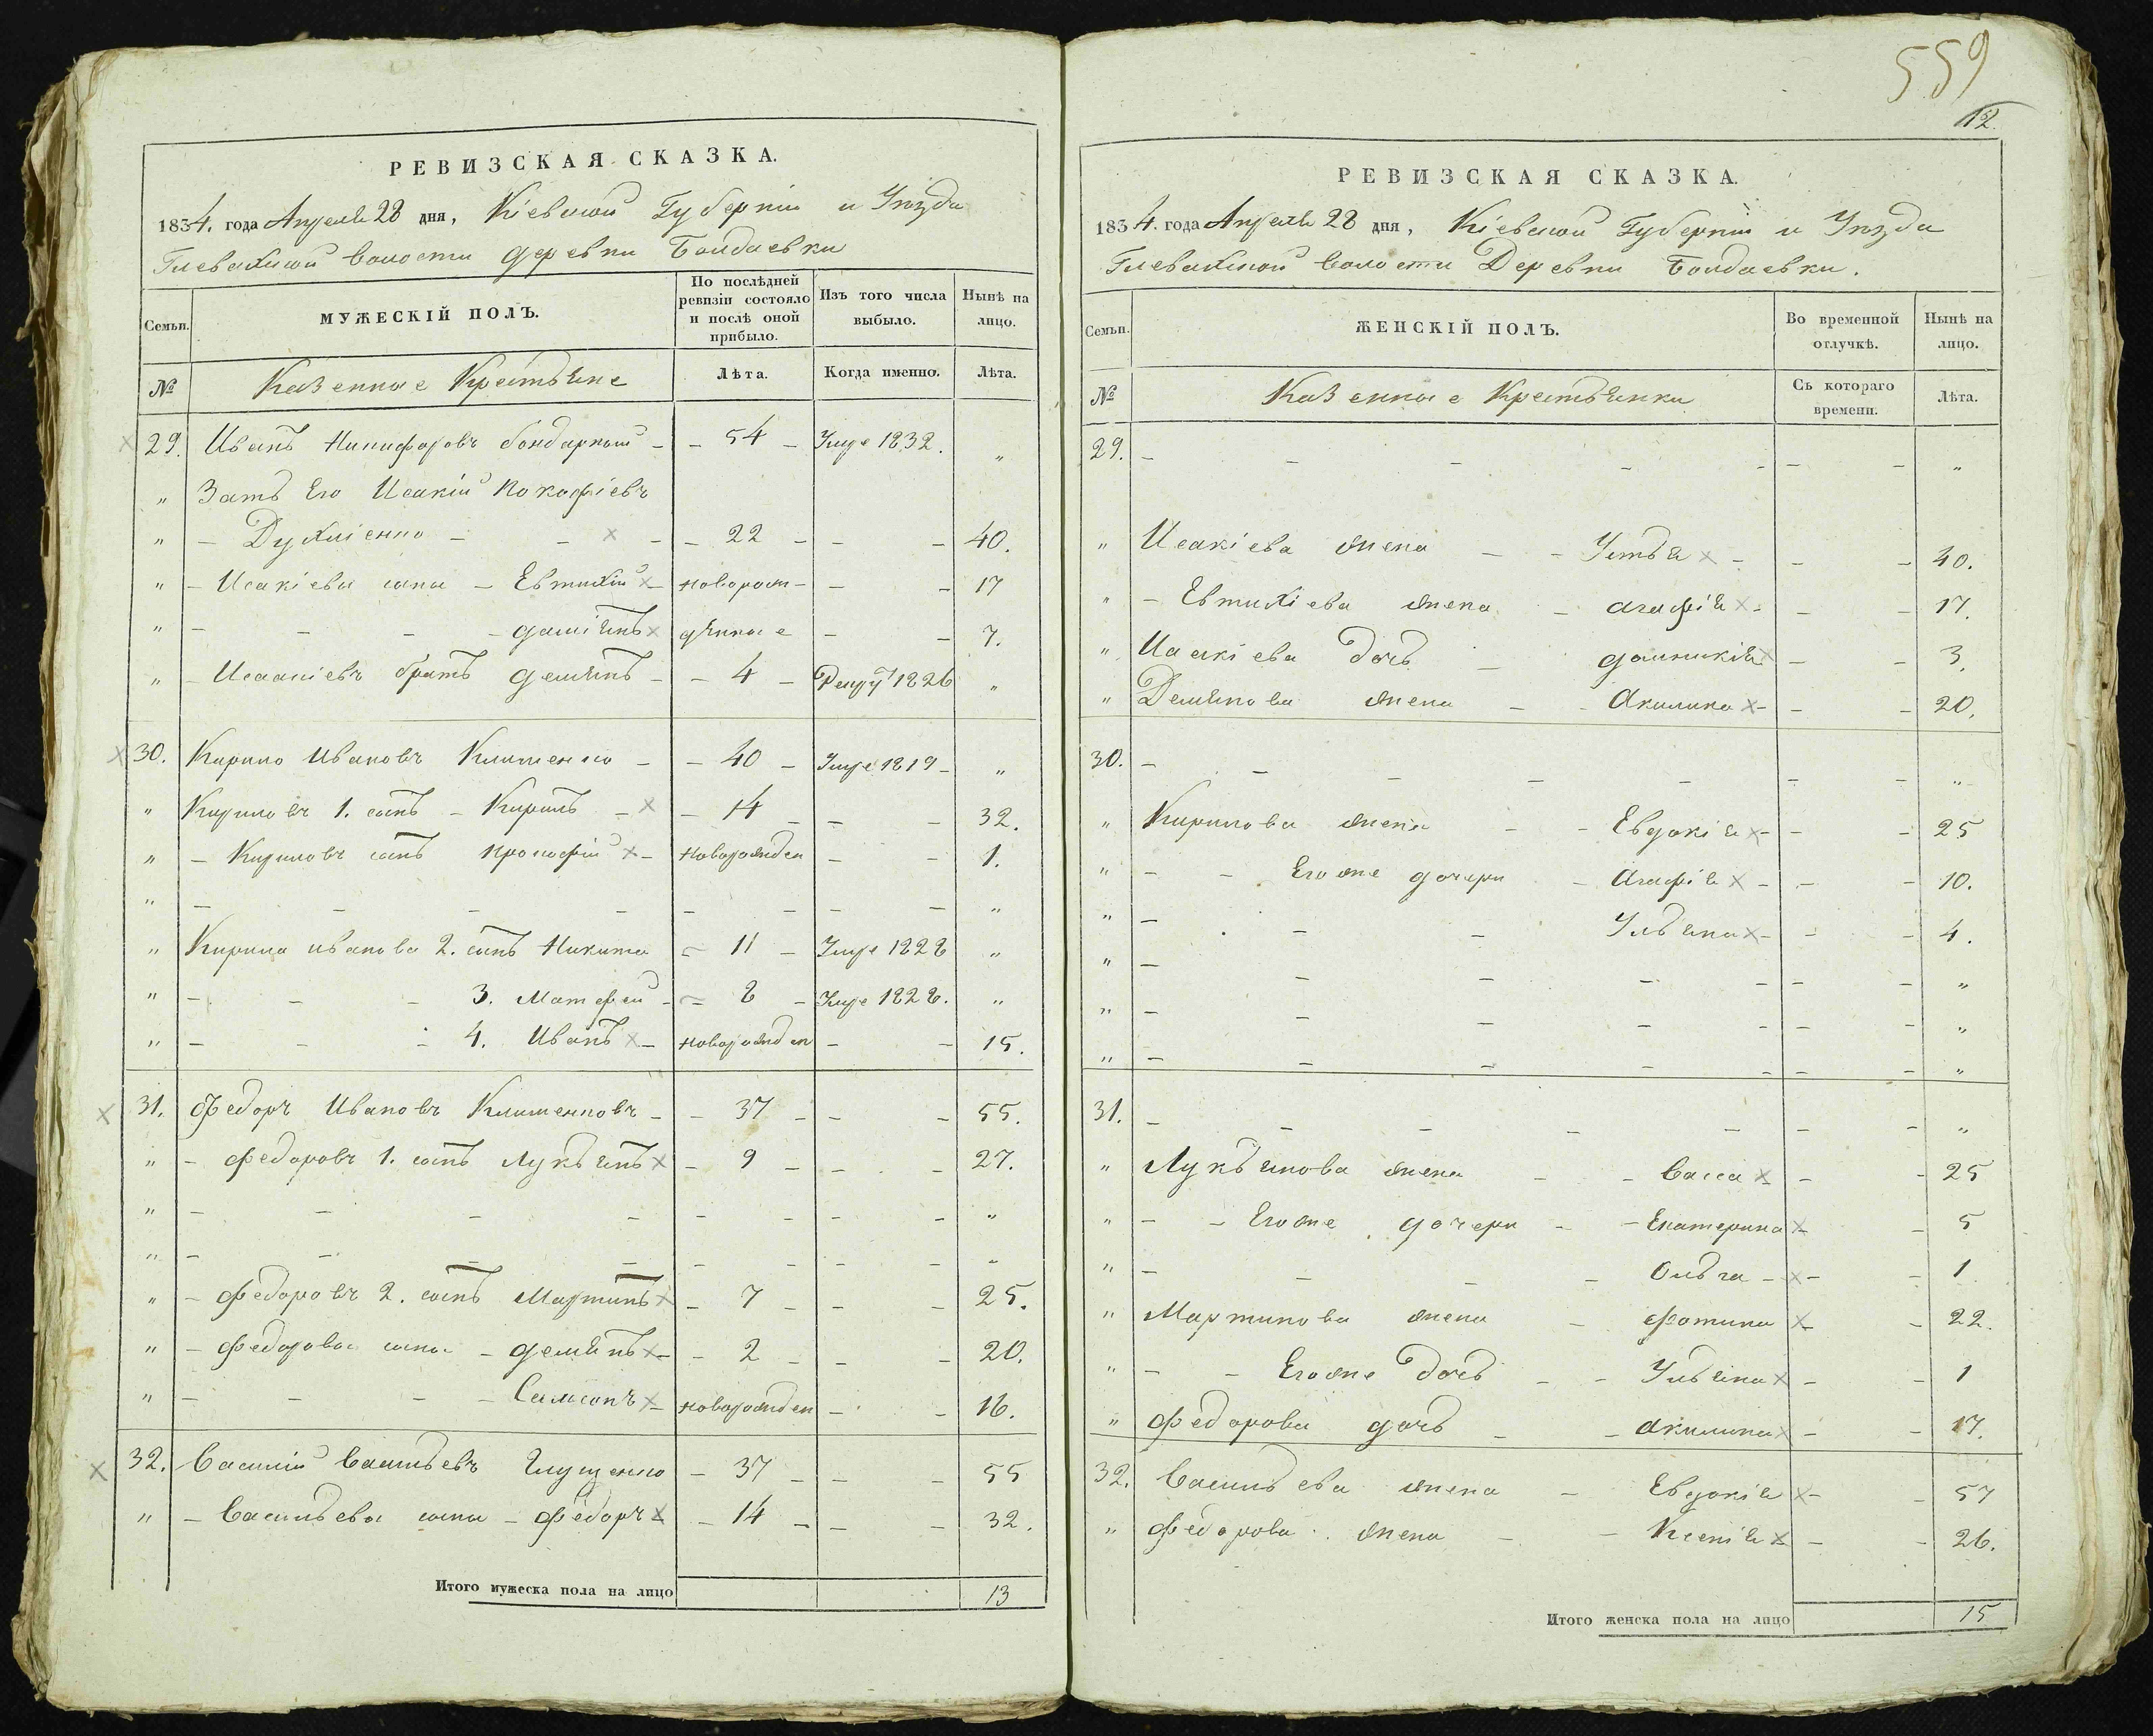 559
12.
РЕВИЗСКАЯ СКАЗКА.
1834. года Апреля 28 дня, Кіевской Губерніи и Уѣзда
Глевахской волости деревни Бондаевки
Семьи. МУЖЕСКІЙ ПОЛЪ. По послѣдней ревизіи состояло и послѣ оной прибыло. Изъ того числа выбыло. Нынѣ на лицо.
№ Казенные Крестьяне Лѣта. Когда именно. Лѣта.
29. Иванъ Никифоровъ - 54 - Умре 1832. "
" Зять Его Исакій
" - - - - 22 - - - 40.
" - Исакіевы сыны - Евтихій - новорож- - - 17
" - - - - Даміянъ дѣнные - - 7.
" - Исакіевъ братъ Демянъ - - 4 - Рекру 1826 "
30. Кирило Ивановъ Клименко - - 40 - Умре 1819 - "
" Кириловъ 1. сынъ - Кирилъ - - 14 - - - 32.
" - Кириловъ сынъ Прокофій - новорожден - - 1.
" - - - - - - - - "
" Кирила Иванова 2. сынъ Никита - 11 - Умре 1828 "
" - - - 3. Матфей - - 8 - Умре 1828. "
" - - - 4. Иванъ - новорожден - - 15.
31. Федоръ Ивановъ Клименковъ - - 37 - - - 55.
" - Федоровъ 1. сынъ Лукъянъ - 9 - - - 27.
" - - - - - - - - "
" - - - - - - - - "
" - Федоровъ 2. сынъ Мартинъ - 7 - - - 25.
" - Федоровы сыны - Демянъ - - 2 - - - 20.
" - - - - Самсонъ - новорожден - - 16.
32. Василій Васильевъ Глущенко - 37 - - - 55
" - Васильевы сыны - Федоръ - 14 - - - 32.
Итого мужеска пола на лицо 13
РЕВИЗСКАЯ СКАЗКА.
1834. года Апреля 28 дня, Кіевской Губерніи и Уѣзда
Глевахской волости Деревни Бондаевки.
Семьи. ЖЕНСКІЙ ПОЛЪ. Во временной отлучкѣ. Нынѣ на лицо.
№ Казенные Крестьянки Съ котораго времени. Лѣта.
29. - - - - - - - "
" Исакіева жена - - Устья - - - 40.
" - Евтихіева жена - Агафія - - - 17.
" Исакіева дочь - Домникія - - 3.
" Демянова жена - - Акилина - - - 20.
30. - - - - - - - "
" Кирилова жена - - Евдокія - - - 25
" - - Его же дочери - Агафія - - - 10.
" - - - Ульяна - - - 4.
" - - - - - - - "
" - - - - - - - "
" - - - - - - - "
31. - - - - - - - "
" Лукъянова жена - - Васса - - - 25
" - - Его же дочери - - Екатерина - - 5
" - - - - Ольга - - - 1
" Мартинова жена - Фотина - - 22.
" - - Его же дочь - - Ульяна - - 1
" Федорова дочь - - Акилина - - 17.
32. Васильева жена - Евдокія - - 57
" Федорова жена - - Ксенія - - 26.
Итого женска пола на лицо 15